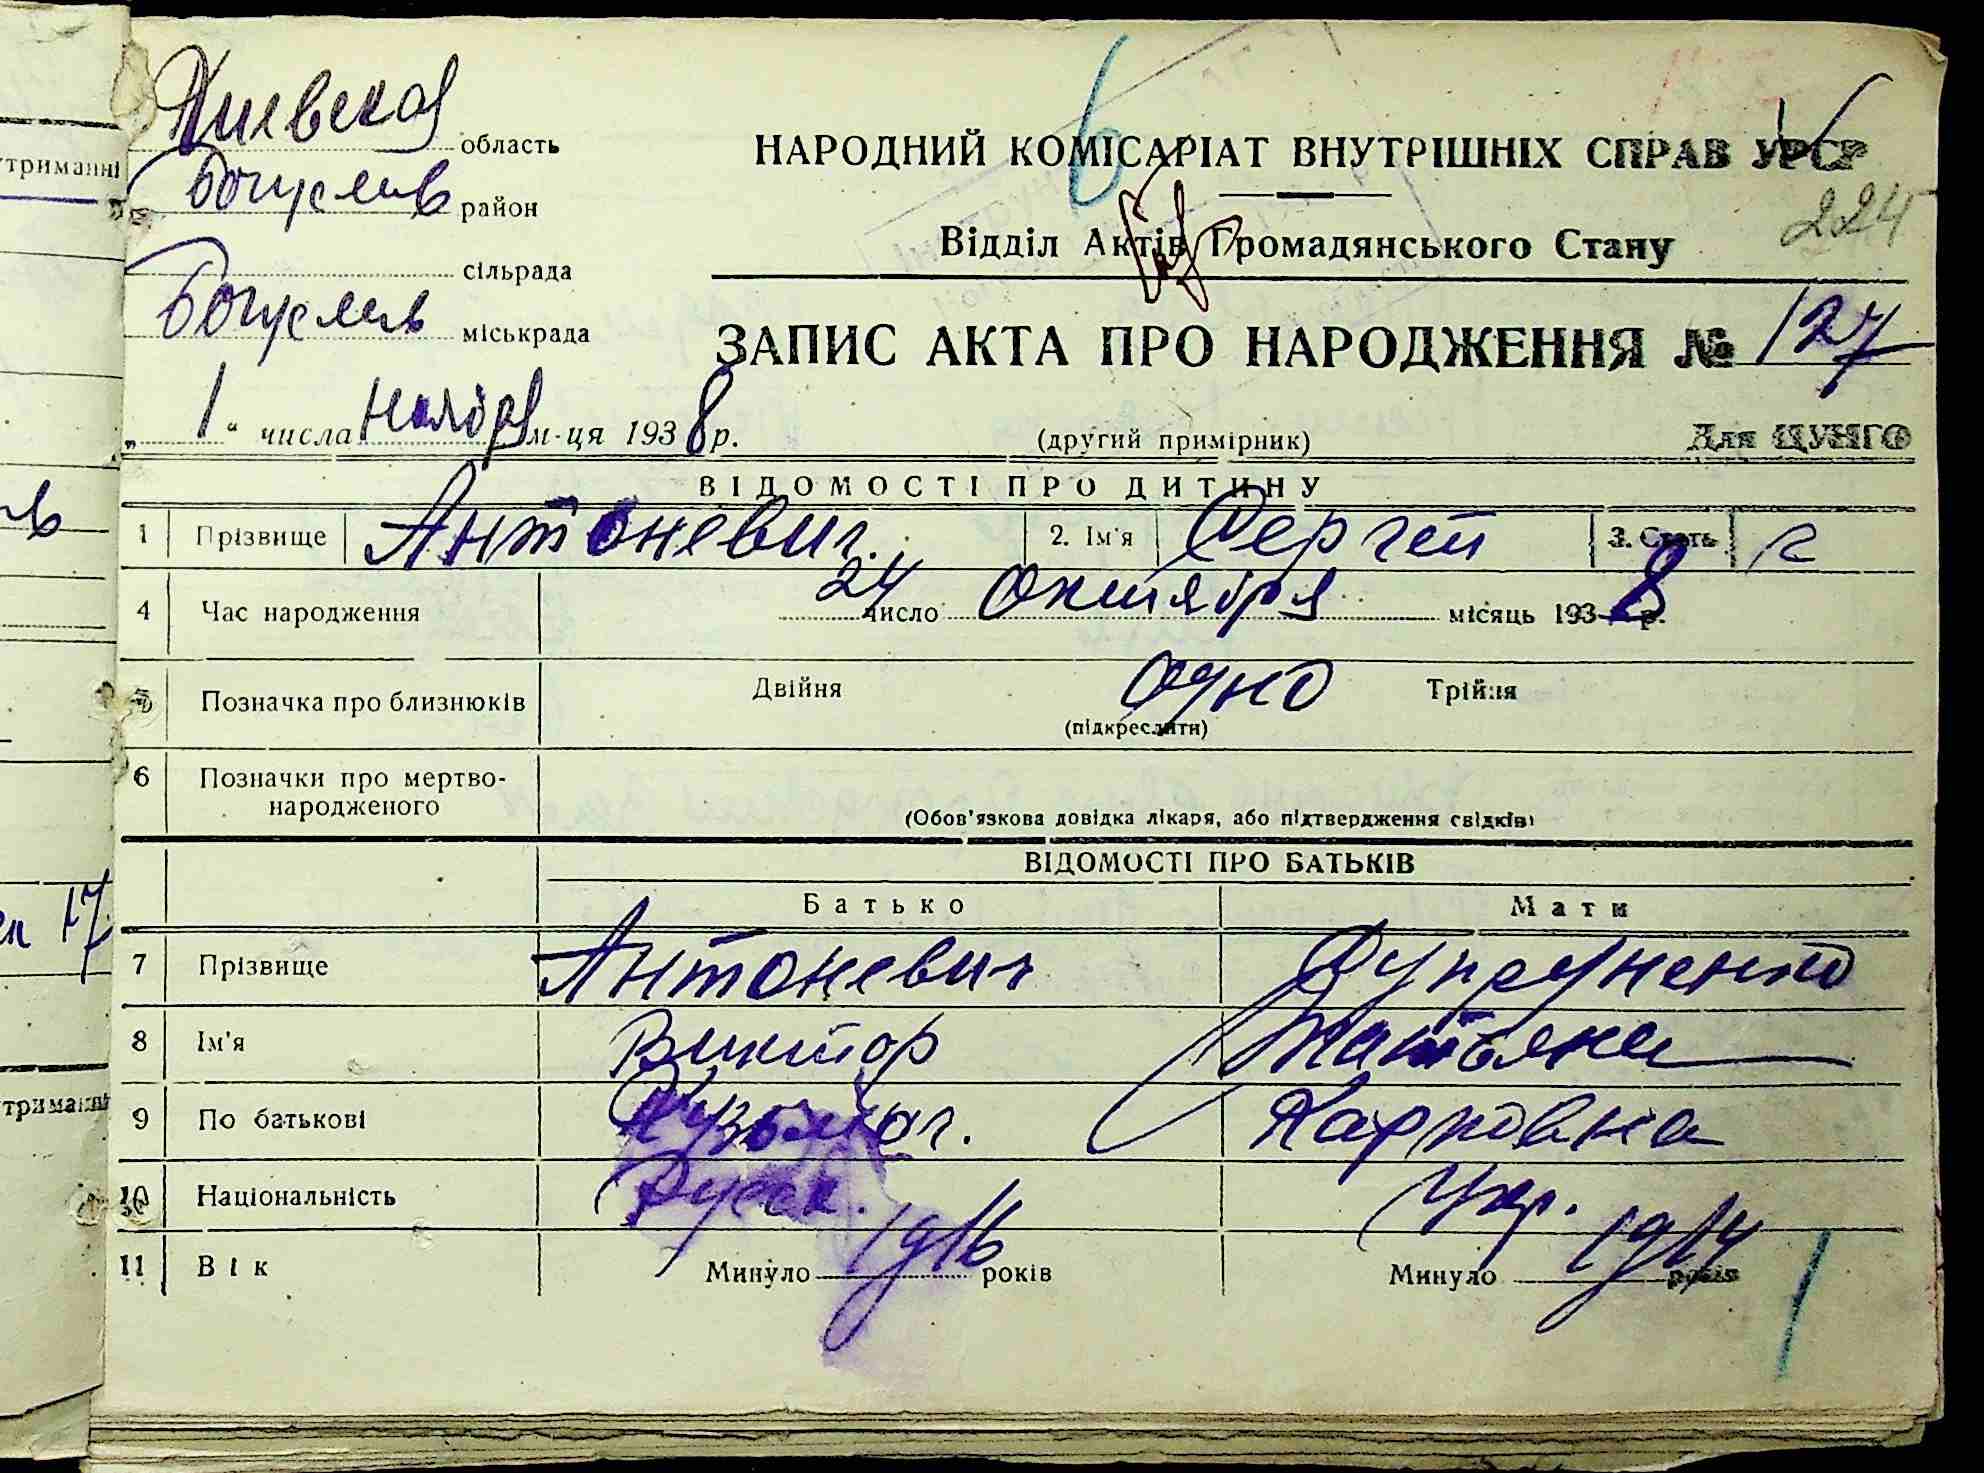 Киевская область
Богуслав район
сільрада
Богуслав міськрада
НАРОДНИЙ КОМІСАРІАТ ВНУТРІШНІХ СПРАВ УРСР
6
224
Відділ Актів Громадянського Стану
ЗАПИС АКТА ПРО НАРОДЖЕННЯ № 127
„ 1 “ числа ноября м-ця 1938 р.
(другий примірник)
Для ЦУНГО
ВІДОМОСТІ ПРО ДИТИНУ
1 Прізвище Антоневич. 2. Ім'я Сергей 3. Стать
4 Час народження 24 число Октября місяць 1938 р.
5 Позначка про близнюків Двійня одно Трійня
(підкреслити)
6 Позначки про мертво-
народженого
(Обов'язкова довідка лікаря, або підтвердження свідків)
ВІДОМОСТІ ПРО БАТЬКІВ
Батько Мати
7 Прізвище Антоневич Супруненко
8 Ім'я Виктор Татьяна
9 По батькові Кузьмич. Карповна
10 Національність Русск. Укр.
11 Вік Минуло 1916 років Минуло 1914 років
тримання
17